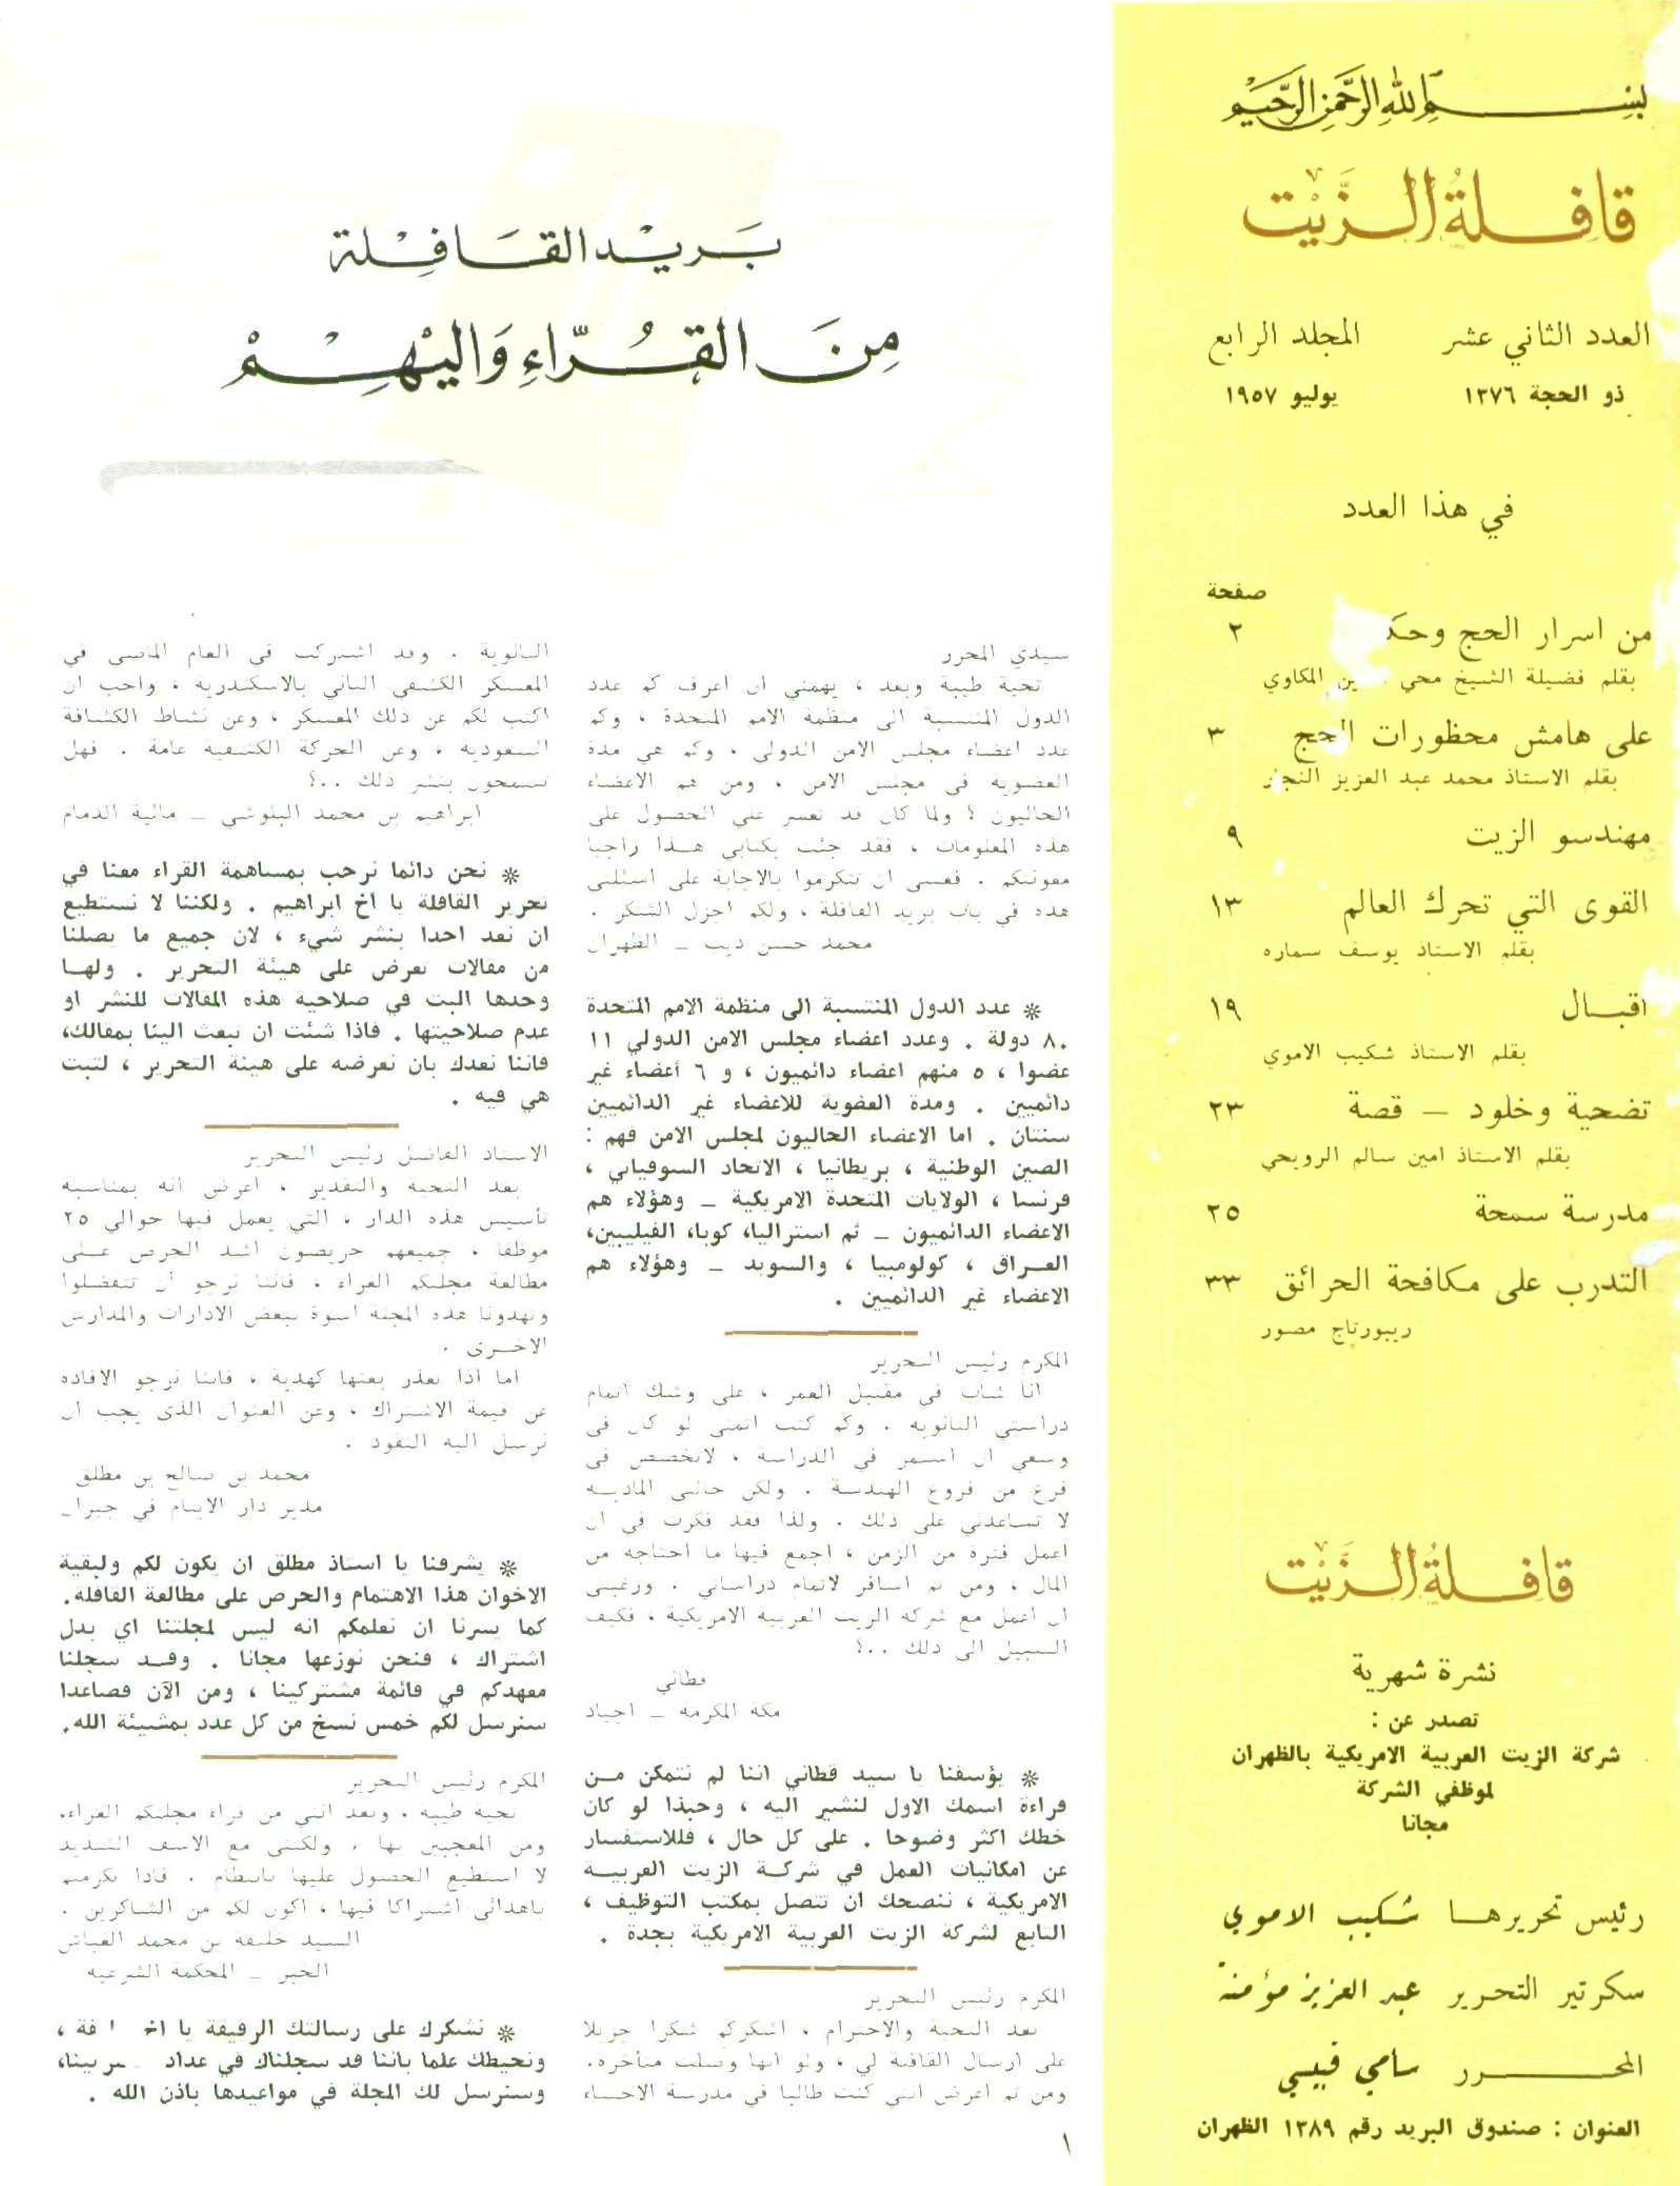 بسم الله الرحمن الرحيم
قافلة الزيت
العدد الثاني عشر المجلد الرابع
ذو الحجة ١٣٧٦ يوليو ١٩٥٧
في هذا العدد
صفحة
من اسرار الحج ٢
بقلم فضيلة الشيخ محي المكاوي
على هامش محظورات الحج ٣
بقلم الاستاذ محمد عبد العزيز النجار
مهندسو الزيت ٩
القوى التي تحرك العالم ١٣
بقلم الاستاذ يوسف سماره
اقبال ١٩
بقلم الاستاذ شكيب الاموي
تضحية وخلود – قصة ٢٣
بقلم الاستاذ امين سالم الرويحي
مدرسة سمحة ٢٥
التدرب على مكافحة الحرائق ٣٣
ريبورتاج مصور
قافلة الزيت
نشرة شهرية
تصدر عن :
شركة الزيت العربية الامريكية بالظهران
لموظفي الشركة
مجانا
رئيس تحريرها شكيب الاموي
سكرتير التحرير عبد العزيز مؤمنة
المحرر سامي قبيسي
العنوان : صندوق البريد رقم ١٣٨٩ الظهران
بريد القافلة
من القراء واليهم
سيدي المحرر
تحية طيبة وبعد ، يهمني ان اعرف كم عدد
الدول المنتسبة الى منظمة الامم المتحدة ، وكم
عدد اعضاء مجلس الامن الدولي ، وكم هي مدة
العضوية في مجلس الامن ، ومن هم الاعضاء
الحاليون ؟ ولما كان قد تعسر علي الحصول على
هذه المعلومات ، فقد جئت بكتابي هذا راجيا
معونتكم . فعسى ان تتكرموا بالاجابة على اسئلتي
هذه في باب بريد القافلة ، ولكم اجزل الشكر .
محمد حسن ديب – الظهران
* عدد الدول المنتسبة الى منظمة الامم المتحدة
٨٠ دولة . وعدد اعضاء مجلس الامن الدولي ١١
عضوا ، ٥ منهم اعضاء دائميون ، و ٦ أعضاء غير
دائميين . ومدة العضوية للاعضاء غير الدائميين
سنتان . اما الاعضاء الحاليون لمجلس الامن فهم :
الصين الوطنية ، بريطانيا ، الاتحاد السوفياتي ،
فرنسا ، الولايات المتحدة الامريكية – وهؤلاء هم
الاعضاء الدائميون – ثم استراليا، كوبا، الفيليبين،
العراق ، كولومبيا ، والسويد – وهؤلاء هم
الاعضاء غير الدائميين .
المكرم رئيس التحرير
انا شاب في مقتبل العمر ، على وشك اتمام
دراستي الثانوية . وكم كنت اتمنى لو كان في
وسعي ان استمر في الدراسة ، لاتخصص في
فرع من فروع الهندسة . ولكن حالتي المادية
لا تساعدني على ذلك . ولذا فقد فكرت في ان
اعمل فترة من الزمن ، اجمع فيها ما احتاجه من
المال ، ومن ثم اسافر لاتمام دراساتي . ورغبتي
ان اعمل مع شركة الزيت العربية الامريكية ، فكيف
السبيل الى ذلك ..؟
قطاني
مكة المكرمة – اجياد
* يؤسفنا يا سيد قطاني اننا لم نتمكن من
قراءة اسمك الاول لنشير اليه ، وحبذا لو كان
خطك اكثر وضوحا . على كل حال ، فللاستفسار
عن امكانيات العمل في شركة الزيت العربية
الامريكية ، ننصحك ان تتصل بمكتب التوظيف ،
التابع لشركة الزيت العربية الامريكية بجدة .
المكرم رئيس التحرير
بعد التحية والاحترام ، اشكركم شكرا جزيلا
على ارسال القافلة لي ، ولو انها وصلت متأخرة.
ومن ثم اعرض انني كنت طالبا في مدرسة الاحساء
الثانوية . وقد اشتركت في العام الماضي في
المعسكر الكشفي الثاني بالاسكندرية ، واحب ان
اكتب لكم عن ذلك المعسكر ، وعن نشاط الكشافة
السعودية ، وعن الحركة الكشفية عامة . فهل
تسمحون بنشر ذلك ..؟
ابراهيم بن محمد البلوشي – مالية الدمام
* نحن دائما نرحب بمساهمة القراء معنا في
تحرير القافلة يا اخ ابراهيم . ولكننا لا نستطيع
ان نعد احدا بنشر شيء ، لان جميع ما يصلنا
من مقالات نعرض على هيئة التحرير . ولها
وحدها البت في صلاحية هذه المقالات للنشر او
عدم صلاحيتها . فاذا شئت ان تبعث الينا بمقالك،
فاننا نعدك بان نعرضه على هيئة التحرير ، لتبت
هي فيه .
الاستاذ الفاضل رئيس التحرير
بعد التحية والتقدير ، اعرض انه بمناسبة
تأسيس هذه الدار ، التي يعمل فيها حوالي ٢٥
موظفا ، جميعهم حريصون اشد الحرص على
مطالعة مجلتكم الغراء ، فاننا نرجو ان تتفضلوا
وتهدونا هذه المجلة اسوة ببعض الادارات والمدارس
الاخرى .
اما اذا تعذر بعثها كهدية ، فاننا نرجو الافادة
عن قيمة الاشتراك ، وعن العنوان الذي يجب ان
نرسل اليه النقود .
محمد بن صالح بن مطلق
مدير دار الايتام في جيزان
* يشرفنا يا استاذ مطلق ان يكون لكم ولبقية
الاخوان هذا الاهتمام والحرص على مطالعة القافلة.
كما يسرنا ان نعلمكم انه ليس لمجلتنا اي بدل
اشتراك ، فنحن نوزعها مجانا . وقد سجلنا
معهدكم في قائمة مشتركينا ، ومن الآن فصاعدا
سنرسل لكم خمس نسخ من كل عدد بمشيئة الله.
المكرم رئيس التحرير
تحية طيبة ، وبعد انني من قراء مجلتكم الغراء،
ومن المعجبين بها . ولكنني مع الاسف الشديد
لا استطيع الحصول عليها بانتظام . فاذا تكرمتم
باهدائي اشتراكا فيها ، اكون لكم من الشاكرين .
السيد خليفة بن محمد
الخبر – المحكمة الشرعية
* نشكرك على رسالتك الرقيقة يا اخ
ونحيطك علما باننا قد سجلناك في عداد
وسنرسل لك المجلة في مواعيدها باذن الله .
١